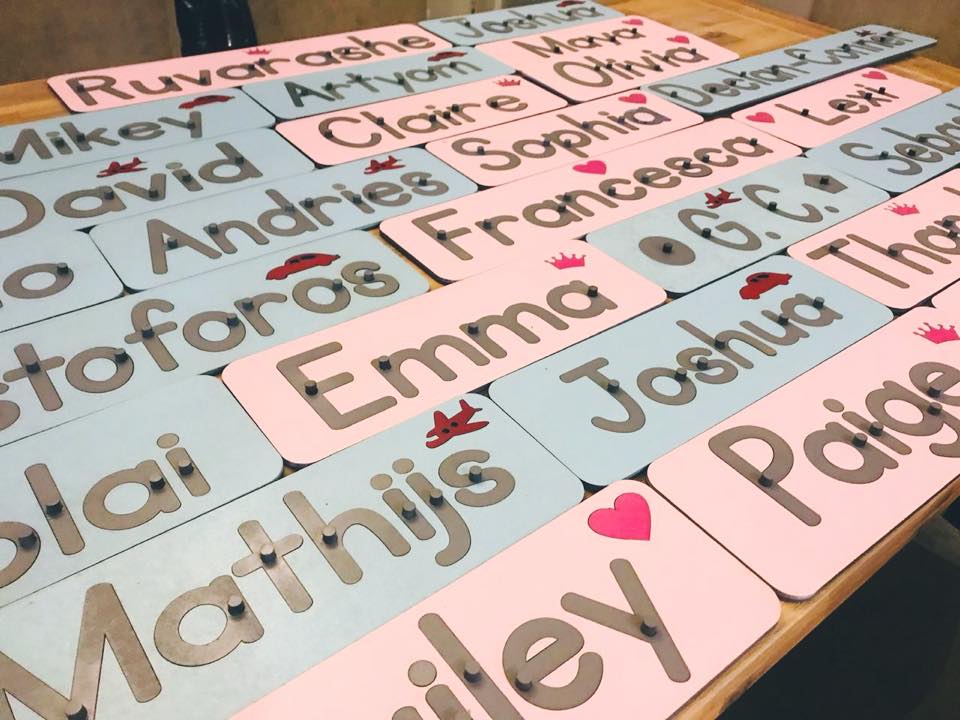 Joshua
Ruvarashe
Maya
Olivia
Artyom
Declan-Conner
Mikey
Claire
Lexi
Sophia
David
Sebas
Andries
Francesca
G.C.
o
Than
stoforos
Emma
Joshua
olai
Paige
Mathijs
iley